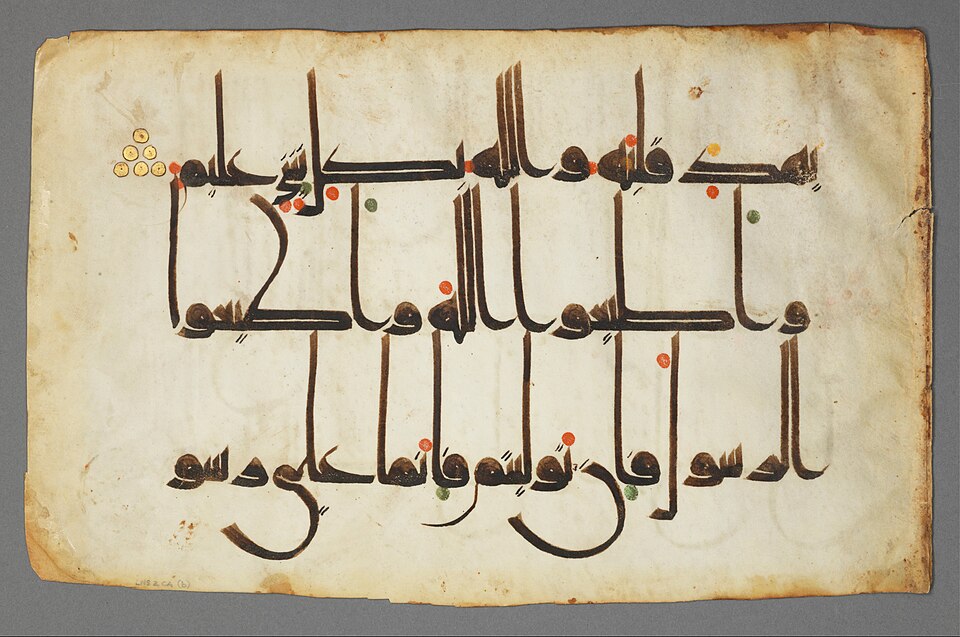 يهد قلبه والله بكل شى عليم
واطيعوا الله واطيعوا
الرسول فان توليتم فانما على رسو